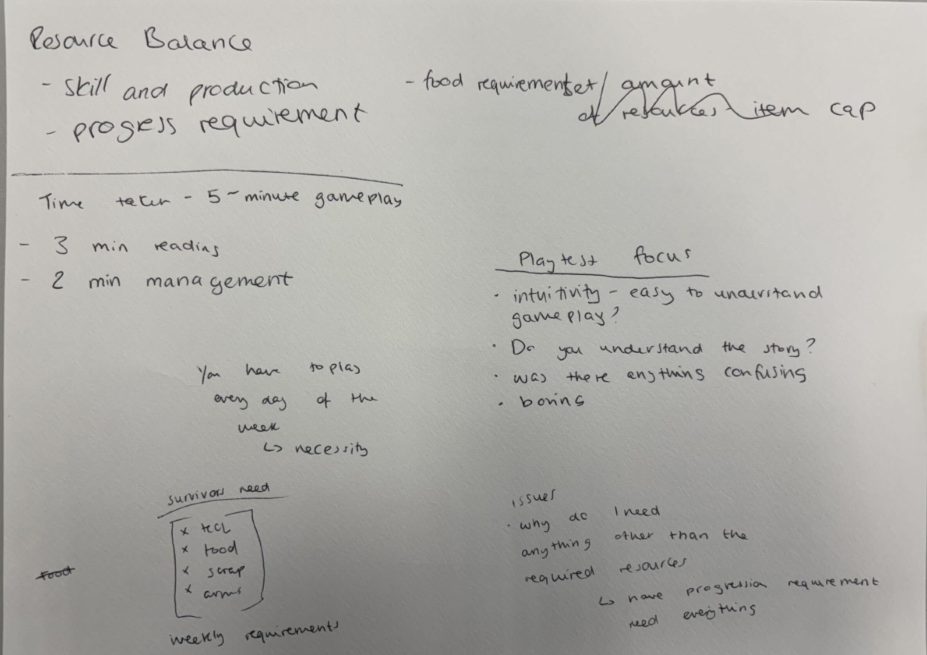 Resource Balance
- skill and production
- progress requirement
- food requirement set / amount
of resources - item cap
Time taken - 5-minute gameplay
- 3 min reading
- 2 min management
Playtest focus
• intuitivity - easy to understand
gameplay?
• Do you understand the story?
• was there anything confusing
• boring
You have to play
every day of the
week
↳ necessity
survivors need
x tech
x food
x scrap
x arms
weekly requirements
food
issues
• why do I need
anything other than the
required resources
↳ have progression requirement
need everything